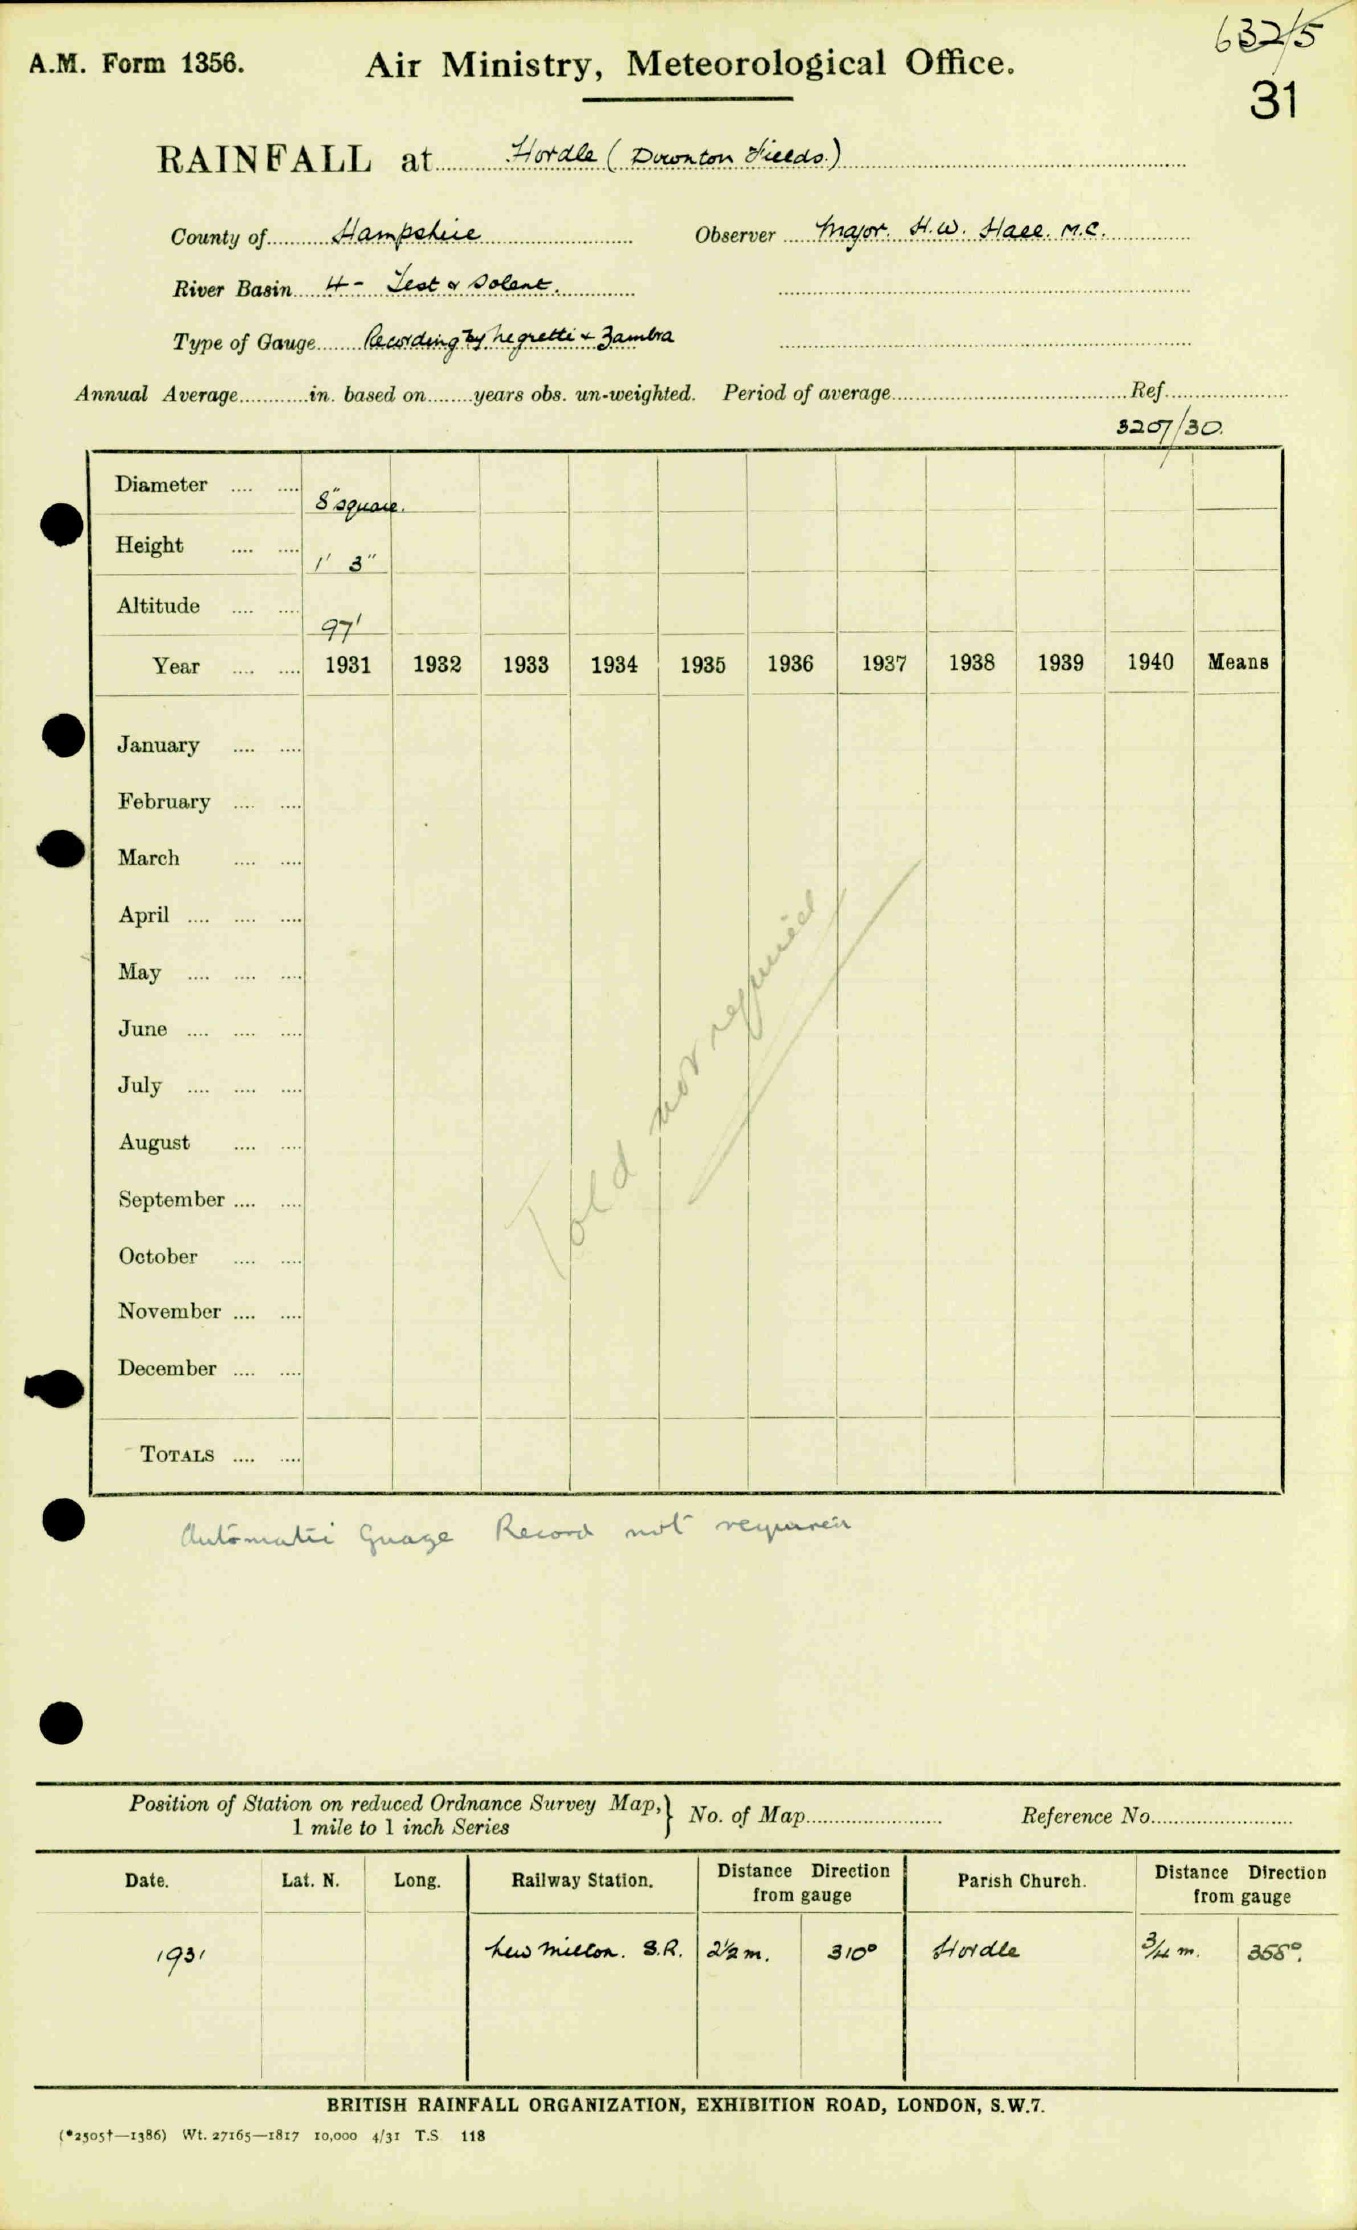 632/5
A.M. Form 1356.
Air Ministry, Meteorological Office.
31
RAINFALL at Hordle (Downton Fields.)
County of Hampshire Observer Major. H.W. Hall. M.C.
River Basin 4 - Test & Solent.
Type of Gauge Recording by Negretti & Zambra
Annual Average in. based on years obs. un-weighted. Period of average Ref.
3207/30.
Diameter 8" square.
Height 1' 3"
Altitude 97'
Year 1931 1932 1933 1934 1935 1936 1937 1938 1939 1940 Means
January
February
March
April
May
June
July
August
September
October
November
December
Told not required
TOTALS
Automatic Guage Record not required
Position of Station on reduced Ordnance Survey Map, } No. of Map Reference No.
1 mile to 1 inch Series
Date. Lat. N. Long. Railway Station. Distance Direction from gauge Parish Church. Distance Direction from gauge
1931 New Milton. S.R. 2½ m. 310° Hordle ¾ m. 358°.
BRITISH RAINFALL ORGANIZATION, EXHIBITION ROAD, LONDON, S.W.7.
(*2505†—1386) Wt. 27165—1817 10,000 4/31 T.S. 118